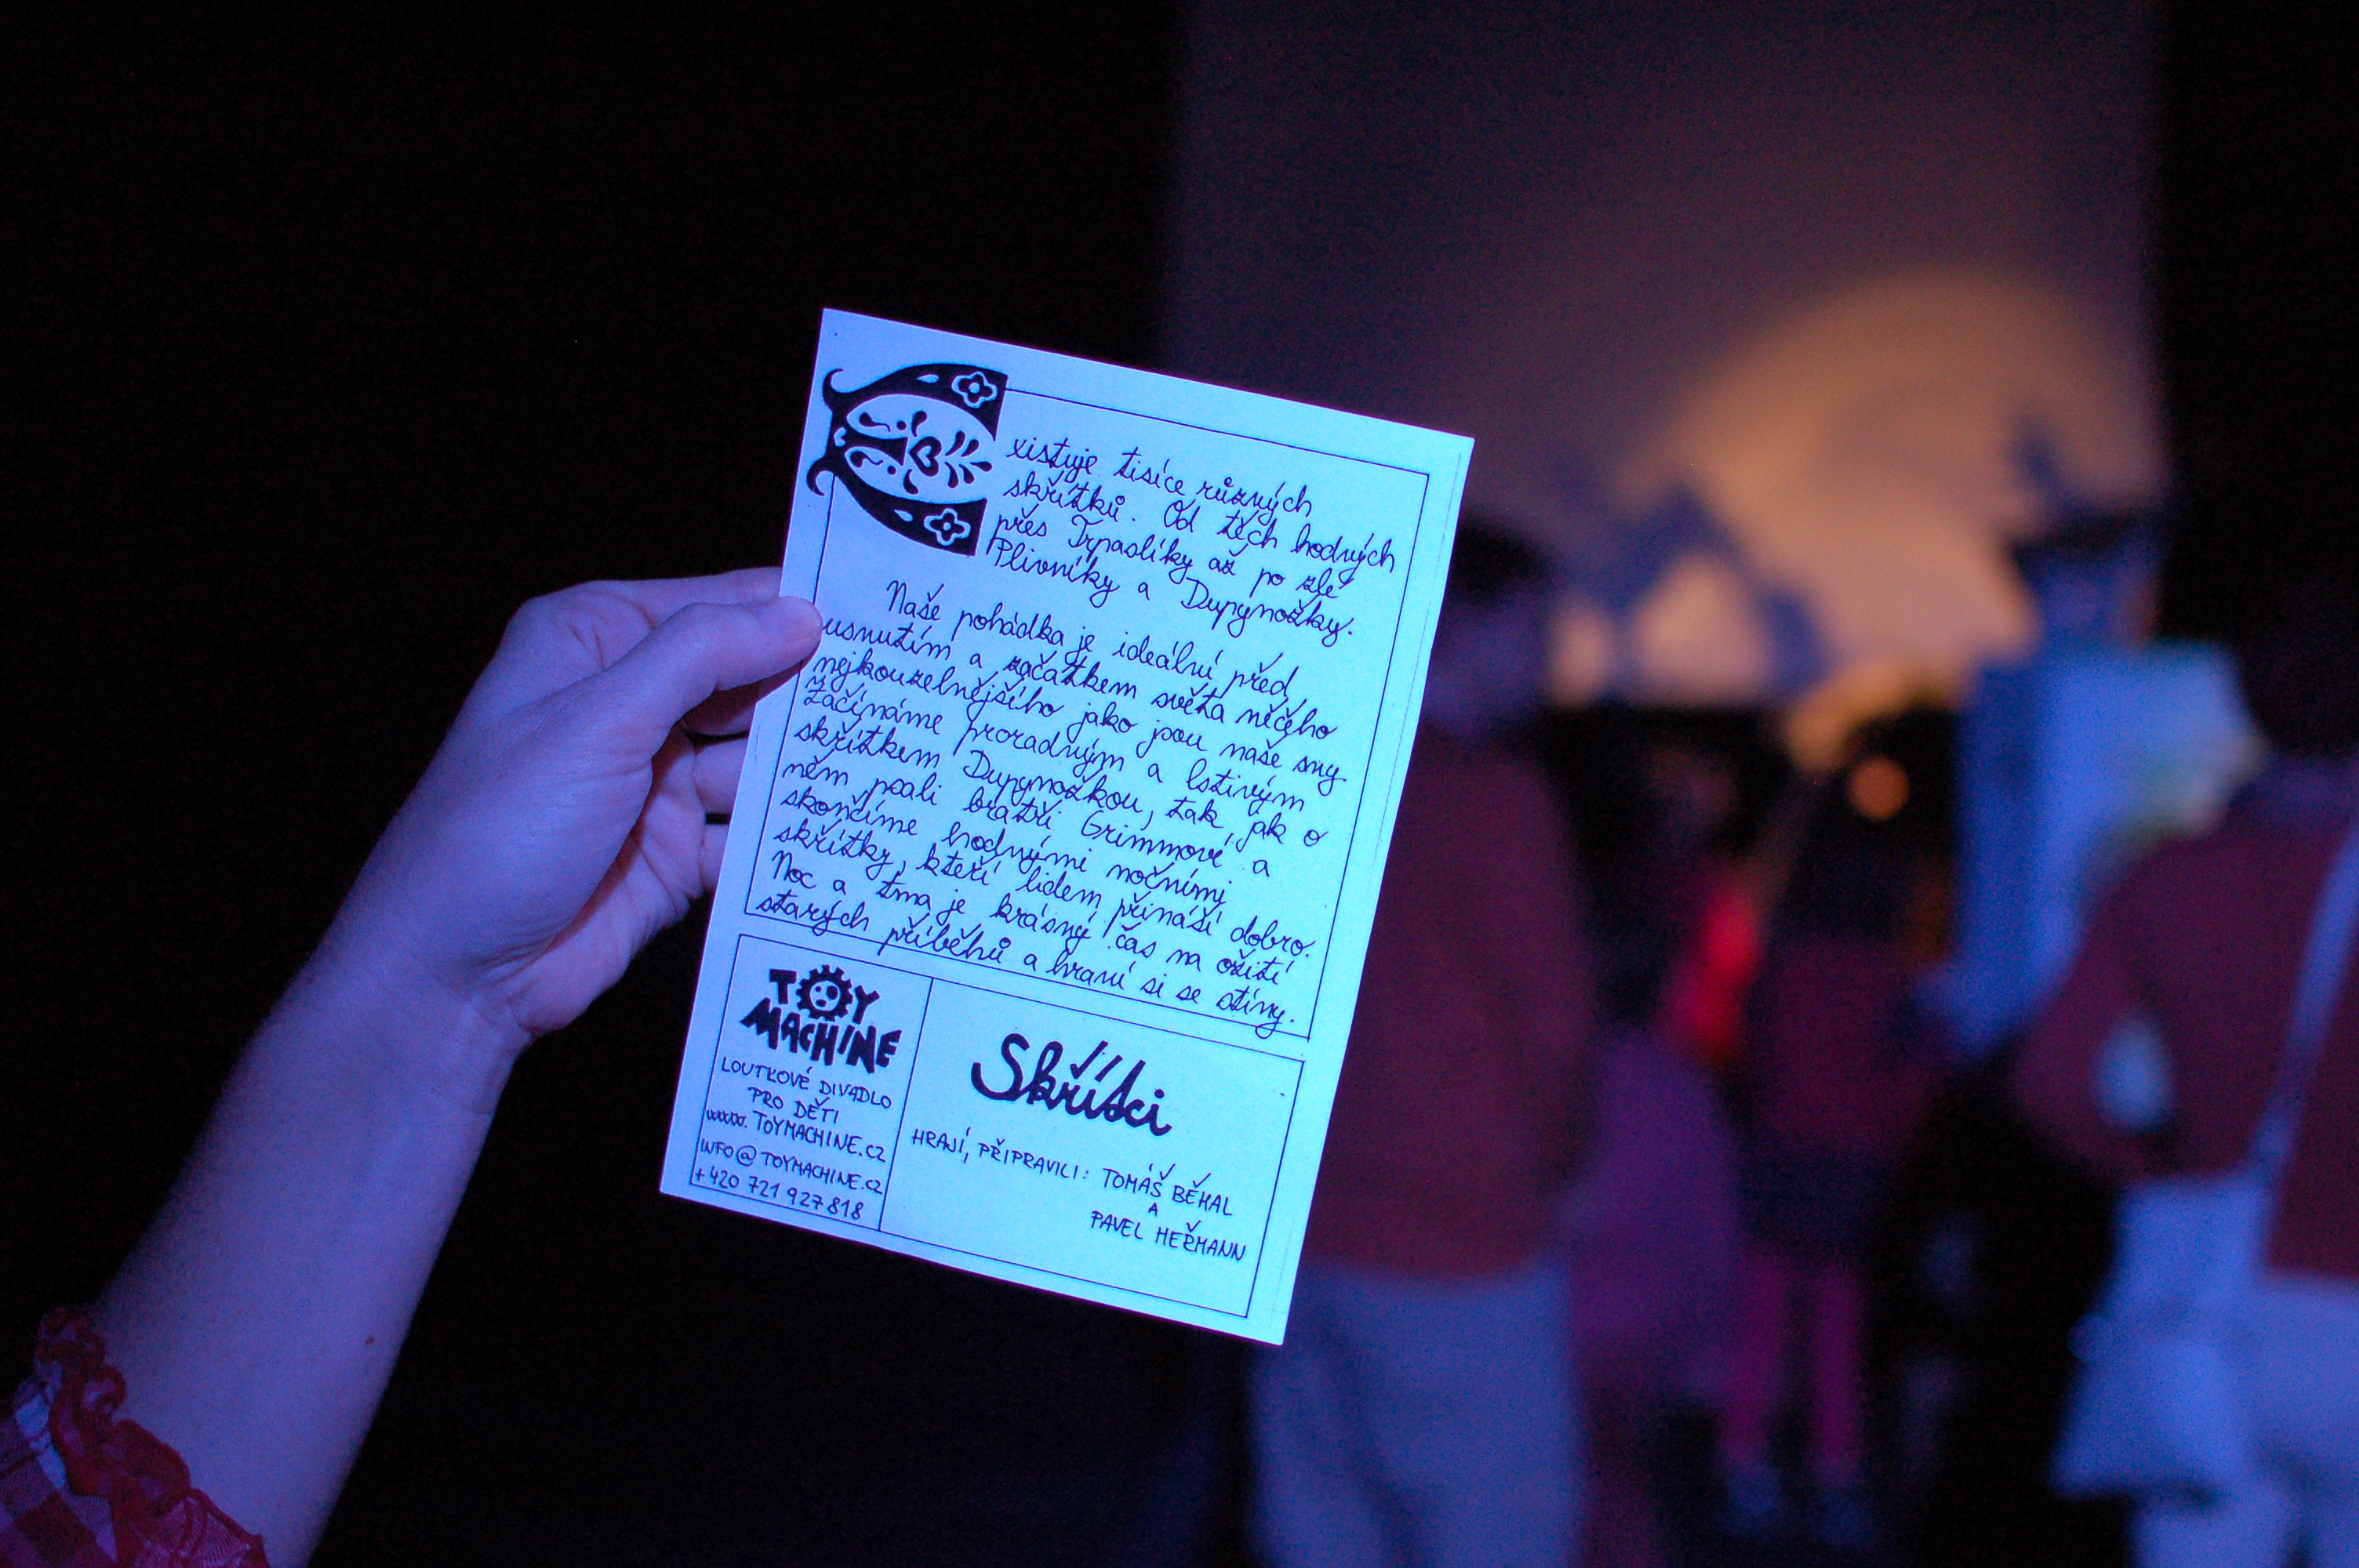 Existuje tisíce různých
skřítků. Od těch hodných
přes Trpaslíky až po zlé
Plivníky a Dupynožky.
Naše pohádka je ideální před
usnutím a začátkem světa něčeho
nejkouzelnějšího jako jsou naše sny.
Začínáme proradným a lstivým
skřítkem Dupynožkou, tak, jak o
něm psali bratři Grimmové a
skončíme hodnými nočními
skřítky, kteří lidem přináší dobro.
Noc a tma je krásný čas na ožití
starých příběhů a hraní si se stíny.
TOY
MACHINE
LOUTKOVÉ DIVADLO
PRO DĚTI
www.TOYMACHINE.CZ
INFO@TOYMACHINE.CZ
+420 721 927 818
Skřítci
HRAJÍ, PŘIPRAVILI: TOMÁŠ BĚHAL
A
PAVEL HEŘMANN